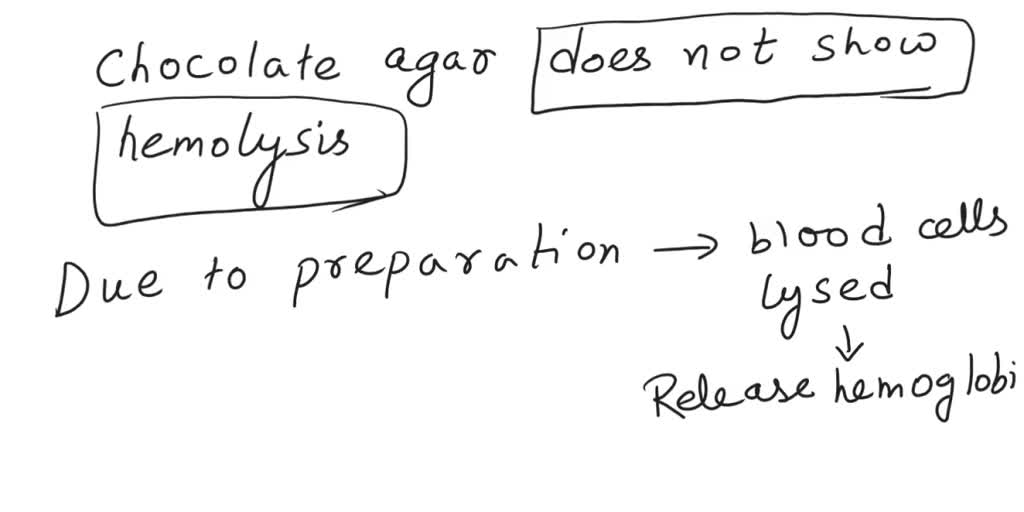 Chocolate agar does not show
hemolysis
Due to preparation → blood cells
lysed
↓
Release hemoglobi